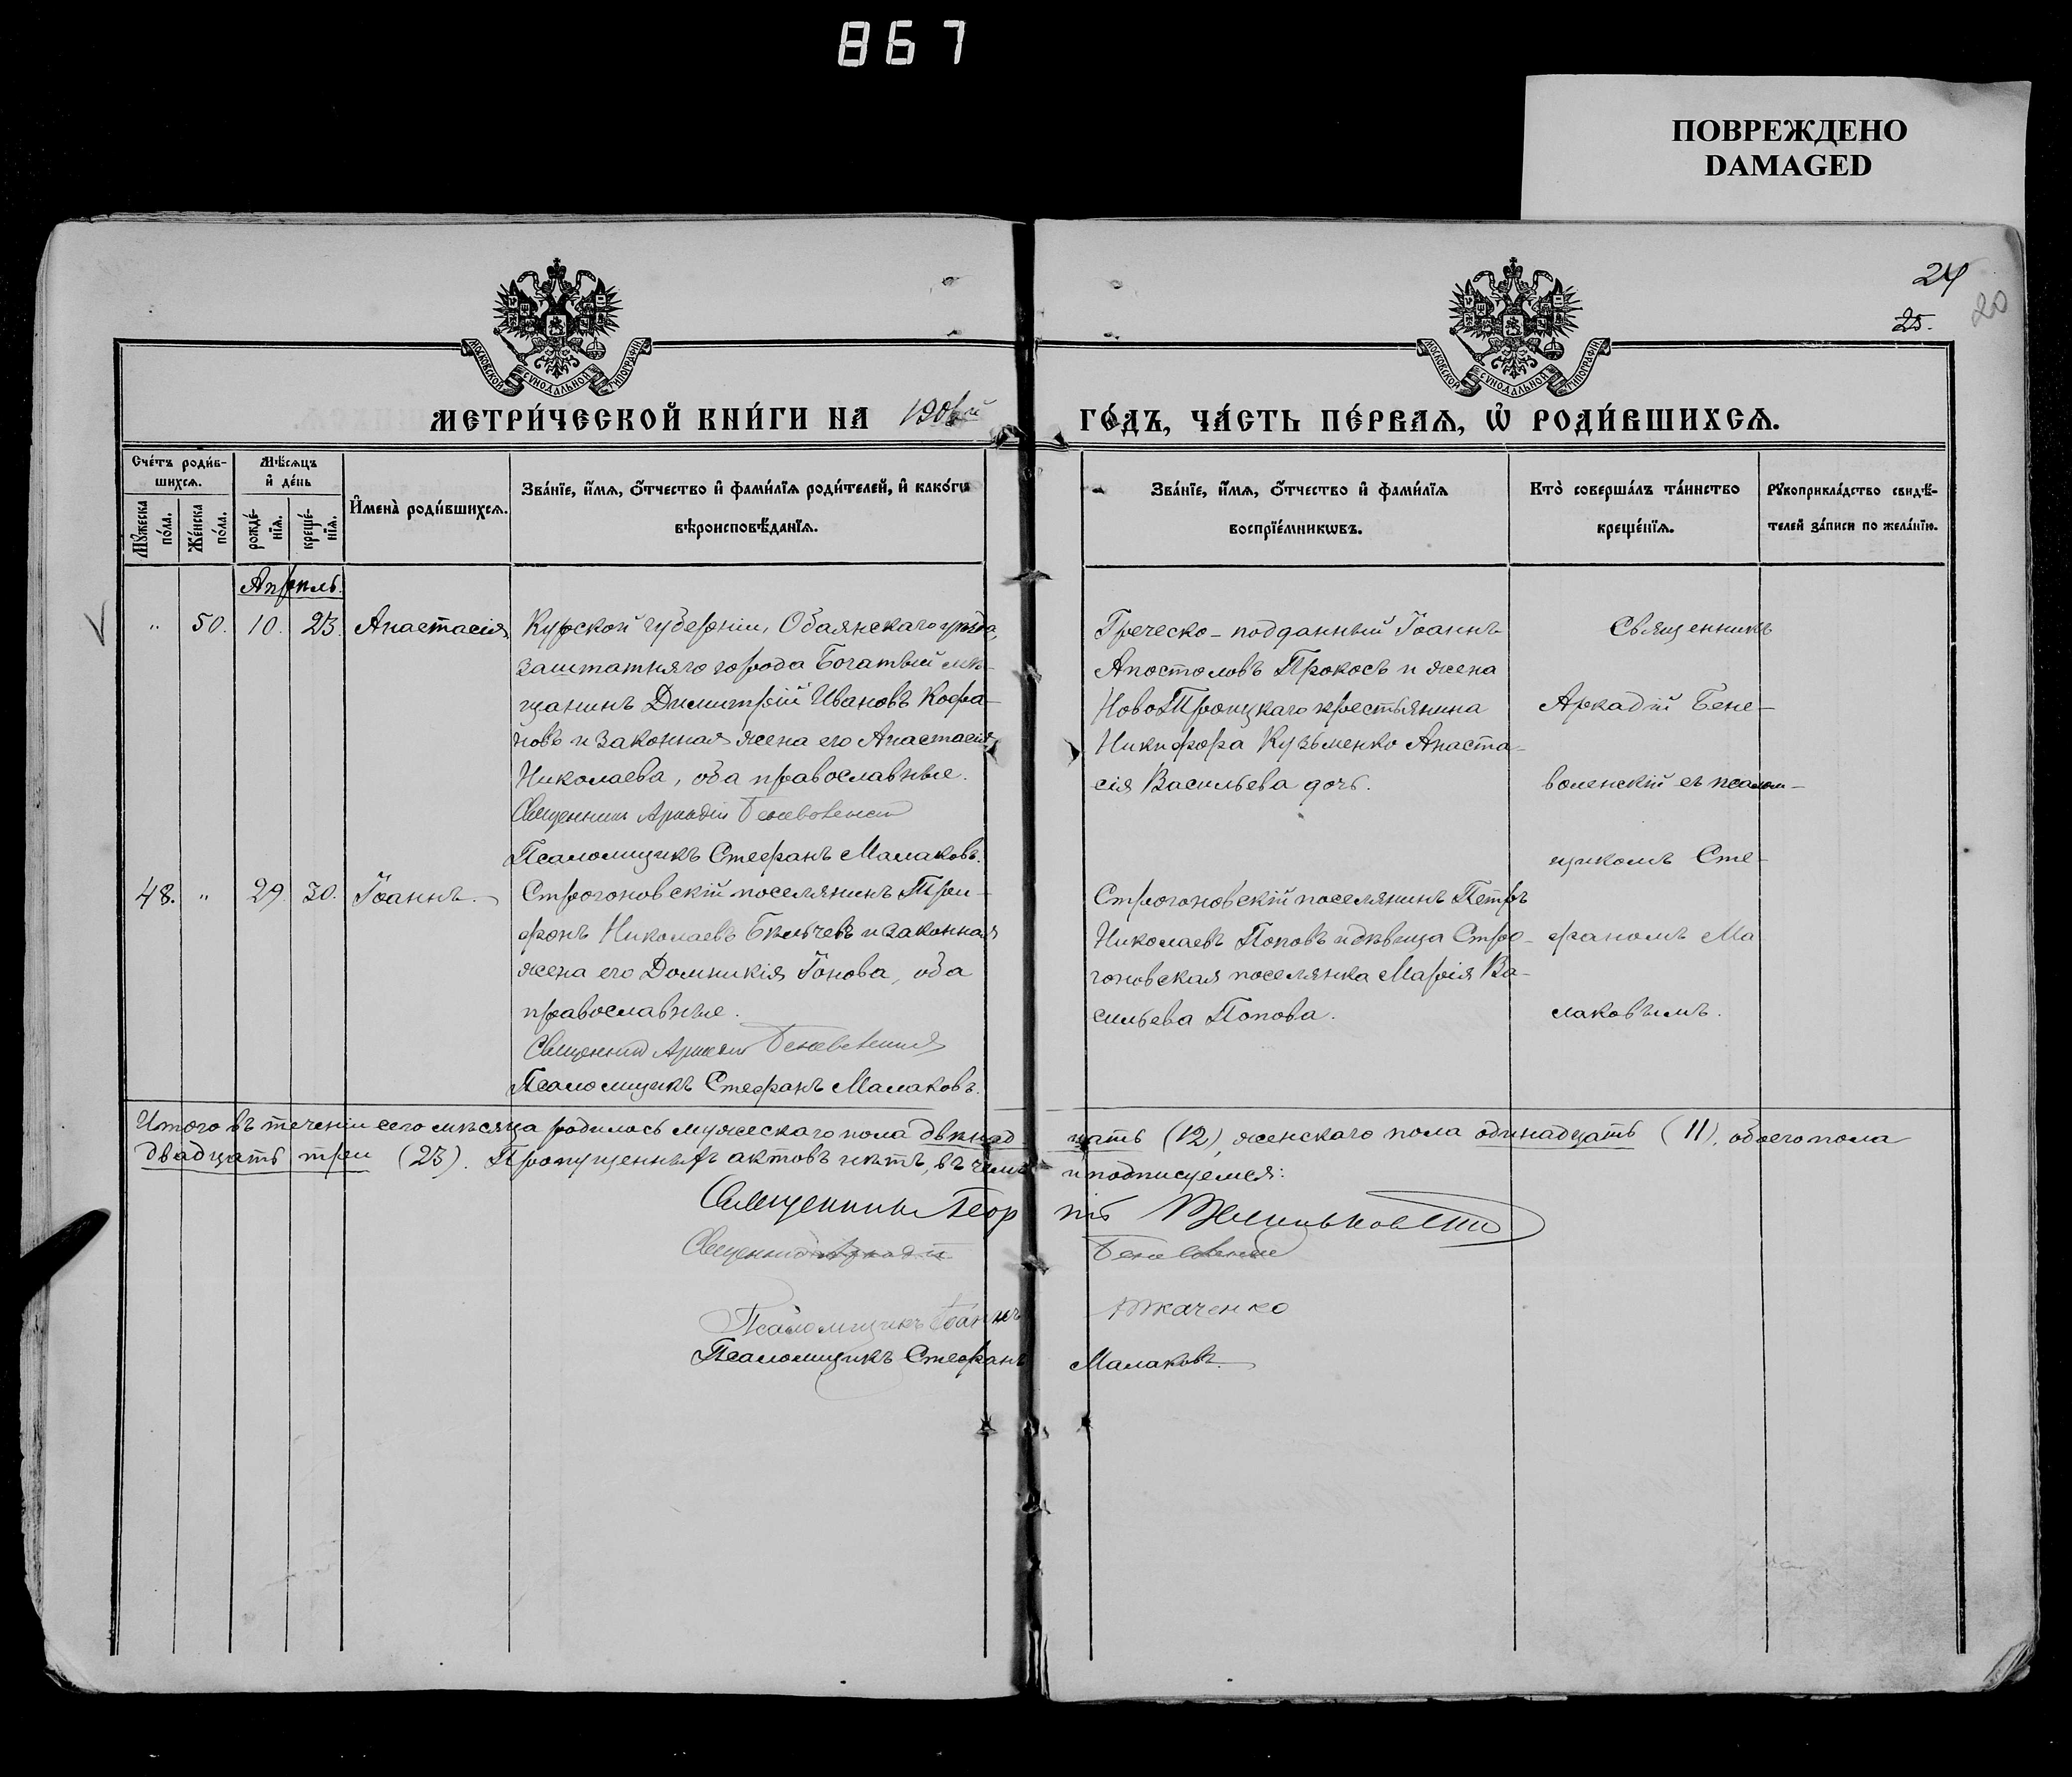 867
ПОВРЕЖДЕНО
DAMAGED
24
25.
20
МОСКОВСКОЙ СѴНОДАЛЬНОЙ ТИПОГРАФІИ
МОСКОВСКОЙ СѴНОДАЛЬНОЙ ТИПОГРАФІИ
МЕТРИ́ЧЕСКОЙ КНИ́ГИ НА
ГО́ДЪ, ЧА́СТЬ ПЕ́РВАѦ, Ѡ РОДИ́ВШИХСѦ.
Сче́тъ роди́в-
шихсѧ.
Мѣ́сѧцъ
и҆ де́нь
Мꙋ́жеска по́ла.
Же́нска по́ла.
рожде́-нїѧ.
креще́-нїѧ.
И҆мена̀ роди́вшихсѧ.
Зва́нїе, и҆́мѧ, ѻ҆́тчество и҆ фами́лїѧ роди́телей, и҆ како́гѡ
вѣроисповѣ́данїѧ.
Зва́нїе, и҆́мѧ, ѻ҆́тчество и҆ фами́лїѧ
воспрїе́мникѡвъ.
Кто̀ соверша́лъ та́инство
креще́нїѧ.
Рꙋкоприкла́дство свидѣ́-
телей за́писи по жела́нїю.
Апрѣль.
" 50. 10. 23. Анастасія
Курской губерніи, Обаянскаго уѣзда,
заштатняго города Богатый мѣ-
щанинъ Димитрій Ивановъ Кофа-
новъ и законная жена его Анастасія
Николаева, оба православные.
Священникъ Аркадій Беневоленскій
Псаломщикъ Стефанъ Малаковъ.
Греческо-подданный Іоаннъ
Апостоловъ Прокосъ и жена
НовоТроицкаго крестьянина
Никифора Кузьменко Анаста-
сія Васильева дочь.
Священникъ
Аркадій Бене-
воленскій съ псалом-
щикомъ Сте-
фаномъ Ма
лаковымъ.
48. " 29. 30. Іоаннъ.
Строгоновскій поселянинъ Три-
фонъ Николаевъ Бѣлычевъ и законная
жена его Домникія Іонова, оба
православные.
Священникъ Аркадій Беневоленскій
Псаломщикъ Стефанъ Малаковъ.
Строгоновскій поселянинъ Петръ
Николаевъ Поповъ и дѣвица Стро-
гоновская поселянка Марія Ва-
сильева Попова.
Итого въ теченіи сего мѣсяца родилось мужескаго пола двѣнад-цать (12), женскаго пола одинадцать (11), обоего пола
двадцать три (23). Пропущенныхъ актовъ нѣтъ, въ чемъ и подписуемся:
Священникъ Георгій
Священникъ Аркадій Беневоленскій
Псаломщикъ Іоаннъ Ткаченко
Псаломщикъ Стефанъ Малаковъ.